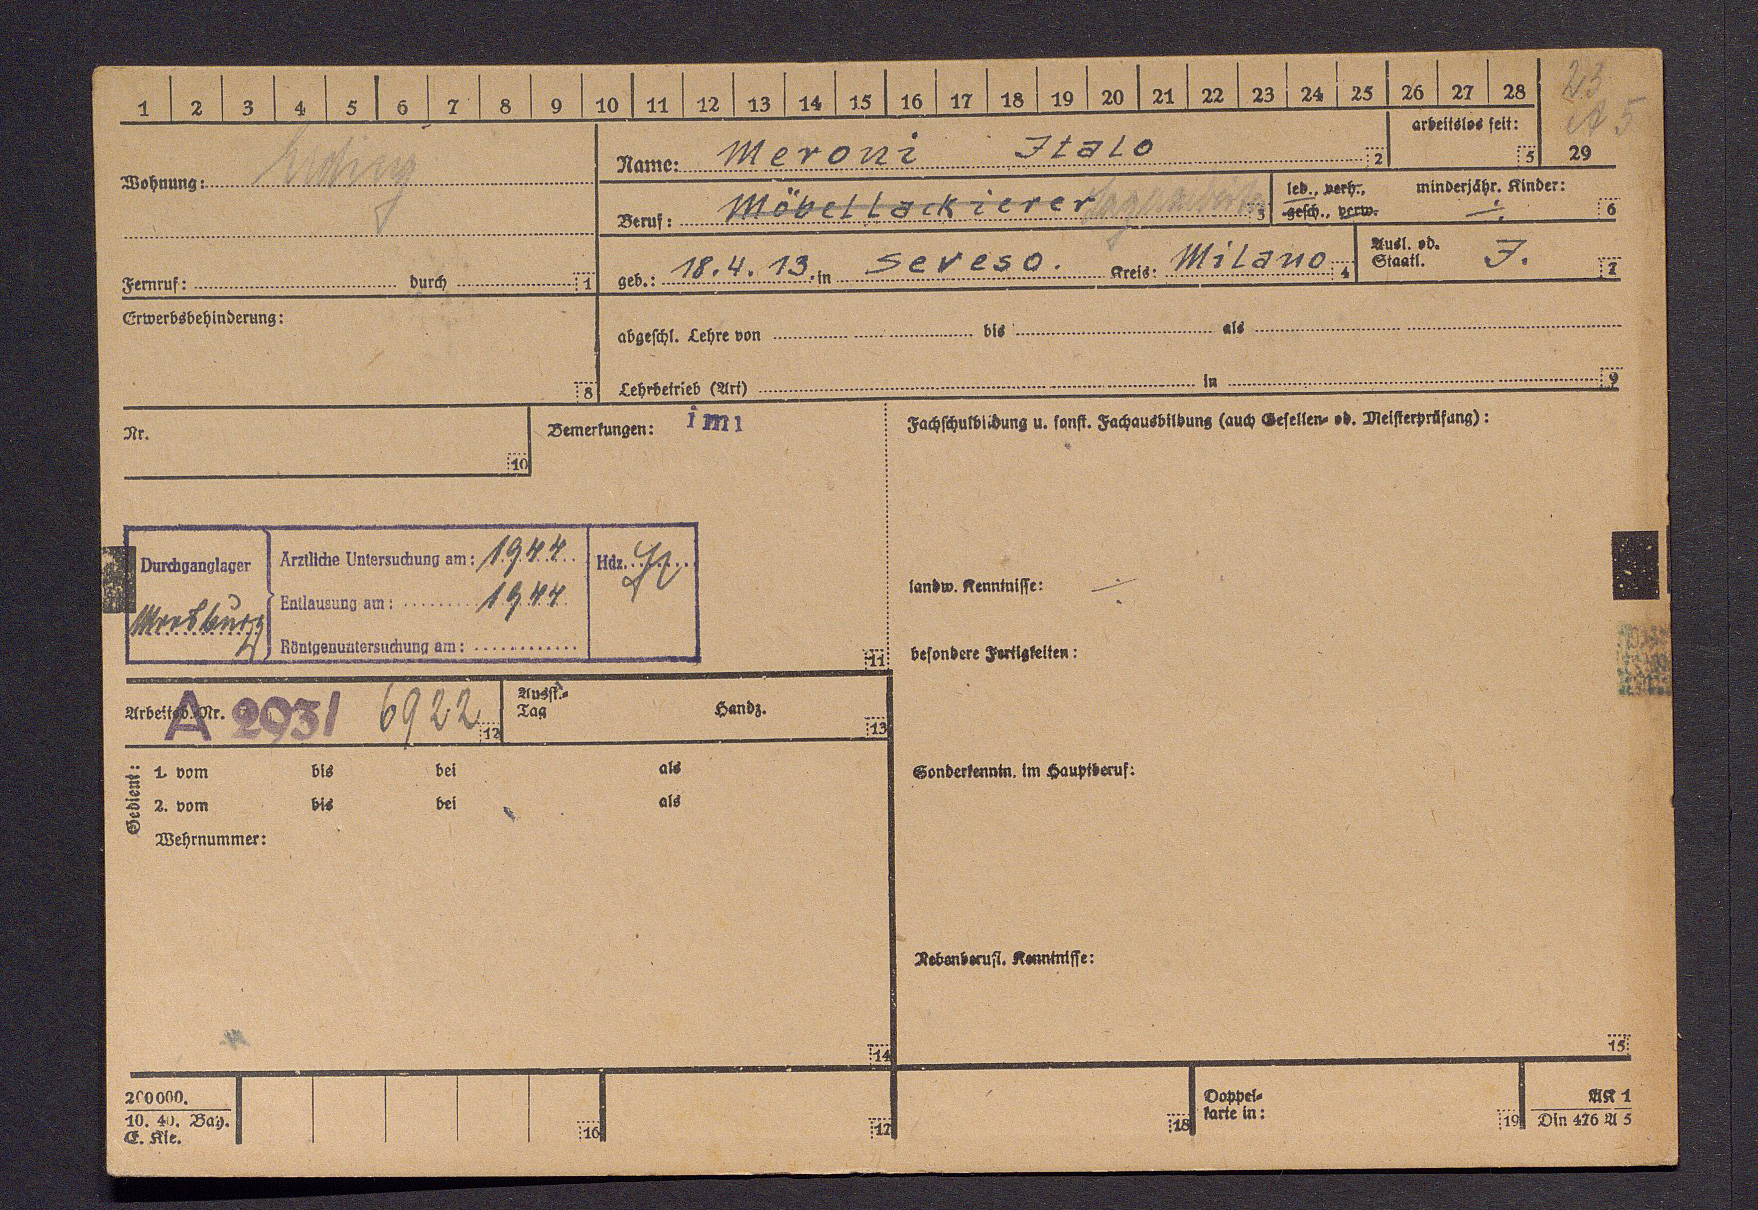 1 2 3 4 5 6 7 8 9 10 11 12 13 14 15 16 17 18 19 20 21 22 23 24 25 26 27 28 23
A 5
29
Wohnung: Erding
Name: Meroni Italo 2
arbeitslos seit: 5
Beruf: Möbellackierer 3
led., verh., gesch., verw.
minderjähr. Kinder: ÷ 6
Fernruf: durch 1
geb.: 18.4.13. in Seveso. Kreis: Milano 4
Ausl. od. Staatl. I. 7
Erwerbsbehinderung: 8
abgeschl. Lehre von bis als
Lehrbetrieb (Art) in 9
Nr. 10
Bemerkungen: imi
Fachschulbildung u. sonst. Fachausbildung (auch Gesellen- od. Meisterprüfung):
Durchganglager
Moosburg
Ärztliche Untersuchung am: 1944
Entlausung am: 1944
Röntgenuntersuchung am:
Hdz.
11
landw. Kenntnisse: ÷
besondere Fertigkeiten:
Arbeitsb. Nr. A 2931 6922 12
Ausst.-Tag Handz. 13
Gedient:
1. vom bis bei als
2. vom bis bei als
Wehrnummer:
14
Sonderkenntn. im Hauptberuf:
Nebenberufl. Kenntnisse:
15
200000.
10. 40. Bay.
E. Kle.
16 17 18
Doppel-
karte in: 19
AK 1
Din 476 A 5